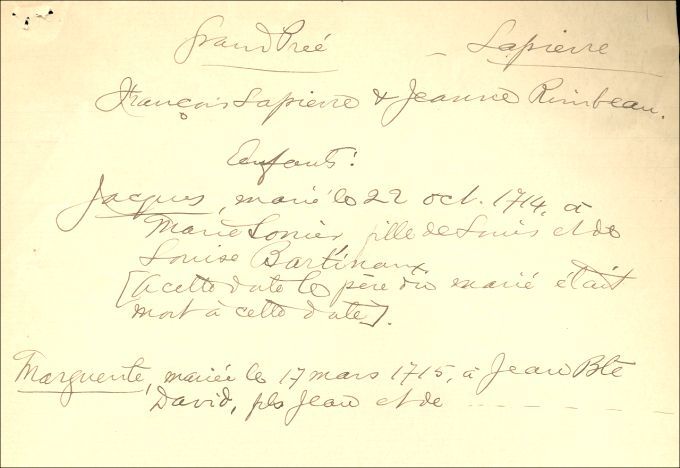 Grand Preé - Lapierre
François Lapierre & Jeanne Rimbeau.
Enfants:
Jacques, marié le 22 oct. 1714, à
Marie Sonier, fille de Louis et de
Louise Bastinaux
[A cette date le père du marié était
mort à cette date].
Marguerite, mariée le 17 mars 1715, à Jean Bte
David, fils Jean et de